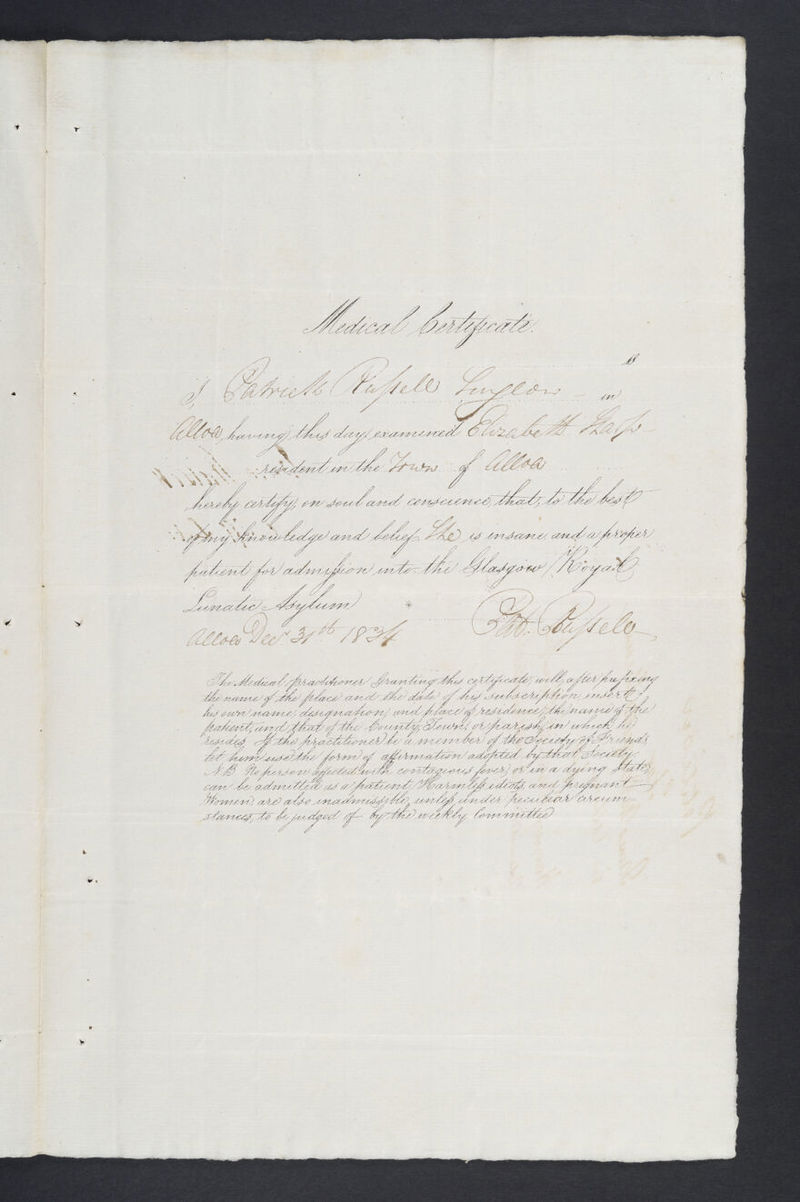 Medical Certificate.
I, Patrick Russell Surgeon in
Alloa, having this day examined Elizabeth Sharp
resident in the Town of Alloa
hereby certify, on soul and conscience, that, to the best
of my knowledge and belief She is insane and a proper
patient for admission into the Glasgow Royal
Lunatic Asylum
Alloa Decr 31st 1834 Pat. Russell
The Medical practitioner Granting this certificate, will, after prefixing
the name of the place and the date of his subscription insert
his own name, designation, and place of residence, the name of the
patient, and that of the County, Town, or parish, in which he
resides, If the practitioner be a member of the Society of Friends
let him use the form of affirmation adopted by that Society
NB No person affected with contagious fever, or in a dying state,
can be admitted as a patient, Harmless idiots, and pregnant
Women are also inadmissible, unless under peculiar circum
stances, to be judged of by the weekly Committee